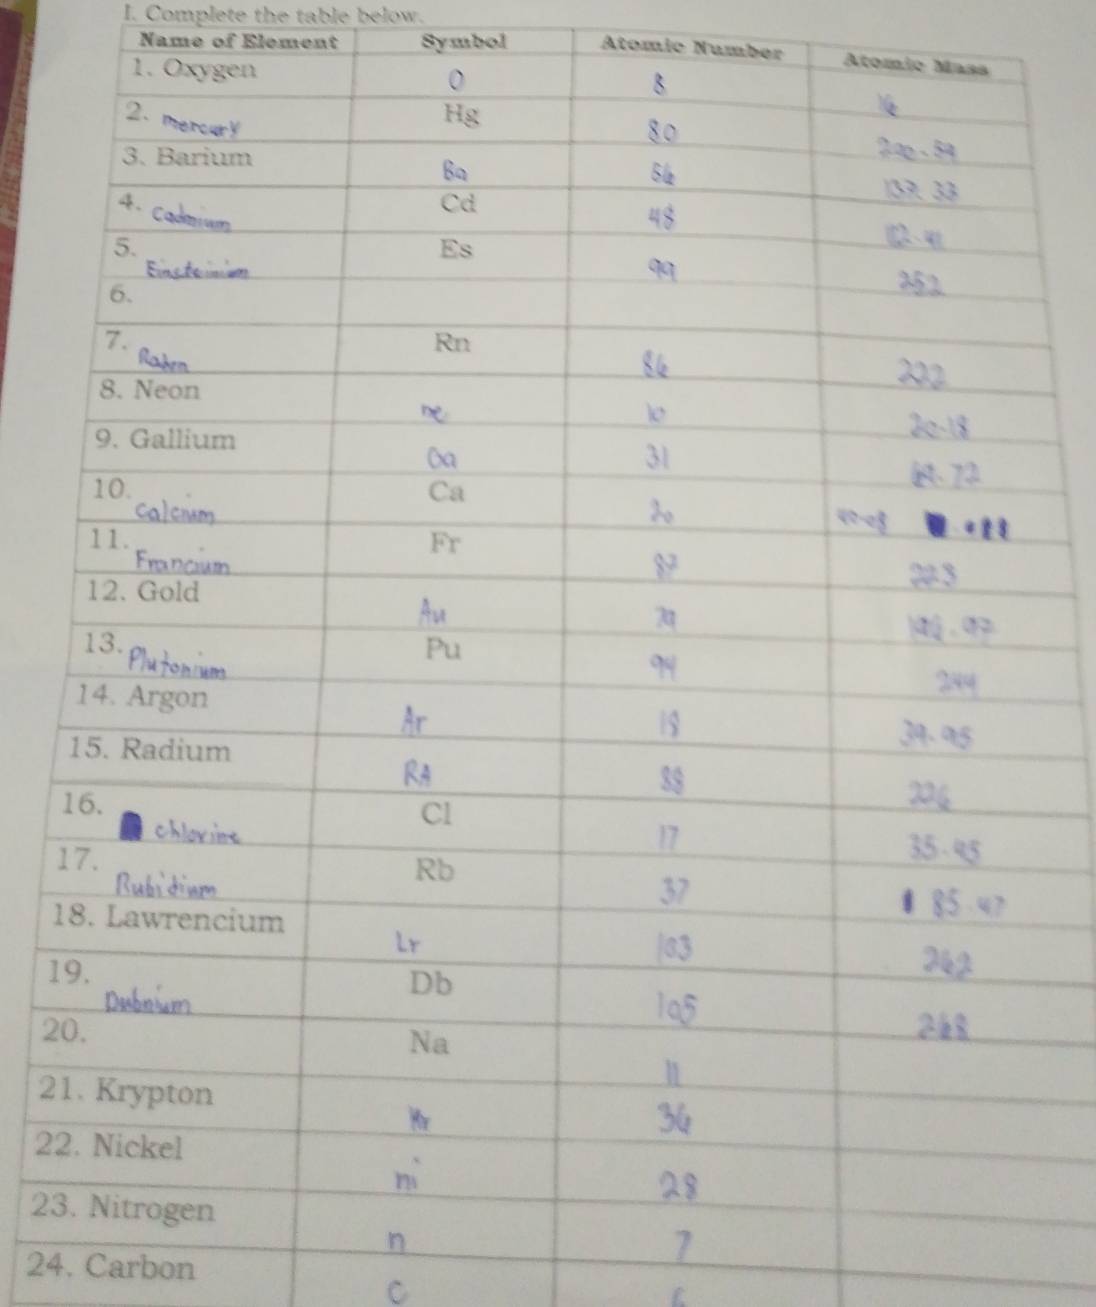 I. Complete the table below.
Name of Element Symbol Atomic Number Atomic Mass
1. Oxygen O 8 16
2. mercury Hg 80 200.59
3. Barium Ba 56 137.33
4. Cadmium Cd 48 112.41
5. Einsteinium Es 99 252
6.
7. Radon Rn 86 222
8. Neon ne 10 20.18
9. Gallium Ga 31 69.72
10. Calcium Ca 20 40.08
11. Francium Fr 87 223
12. Gold Au 79 196.97
13. Plutonium Pu 94 244
14. Argon Ar 18 39.95
15. Radium RA 88 226
16. chlorine Cl 17 35.45
17. Rubidium Rb 37 85.47
18. Lawrencium Lr 103 262
19. Dubnium Db 105 268
20. Na 11
21. Krypton Kr 36
22. Nickel ni 28
23. Nitrogen n 7
24. Carbon C 6